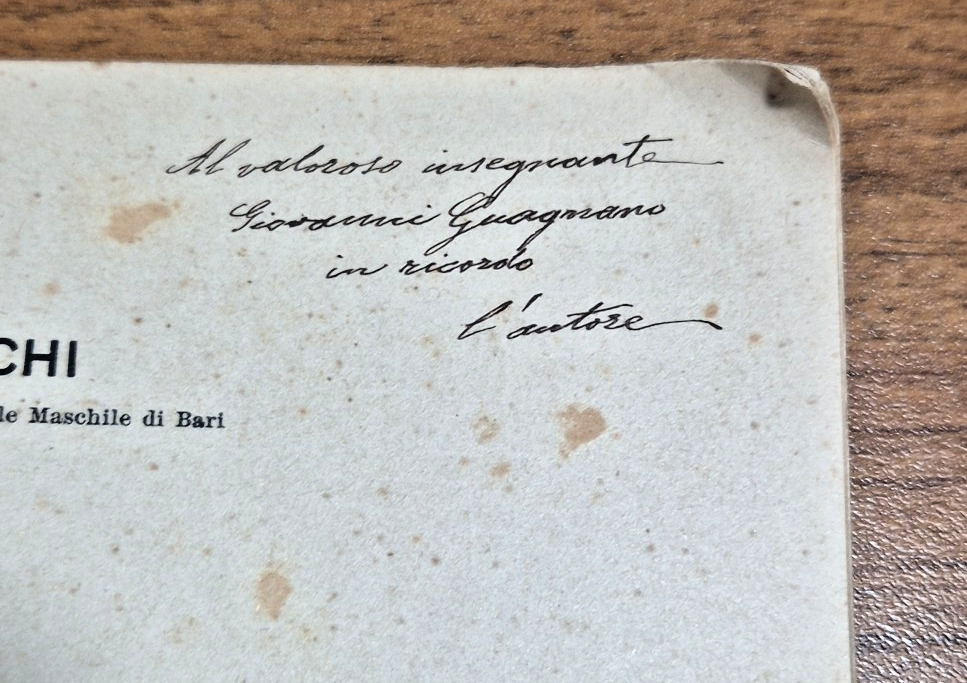 Al valoroso insegnante
Giovanni Guagnano
in ricordo
l'autore
CHI
le Maschile di Bari